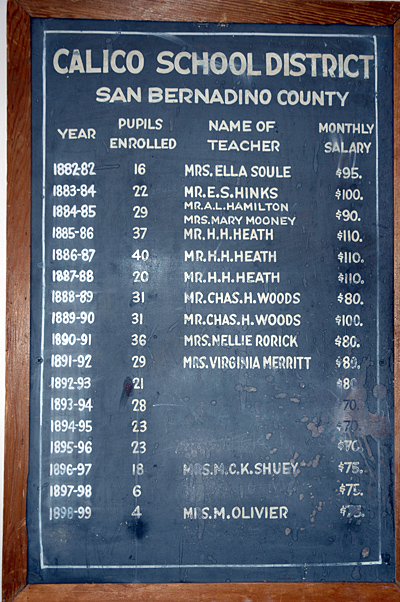 CALICO SCHOOL DISTRICT
SAN BERNADINO COUNTY
YEAR PUPILS ENROLLED NAME OF TEACHER MONTHLY SALARY
1882-82 16 MRS. ELLA SOULE $95.
1883-84 22 MR. E. S. HINKS $100.
1884-85 29 MR. A. L. HAMILTON MRS. MARY MOONEY $90.
1885-86 37 MR. H. H. HEATH $110.
1886-87 40 MR. H. H. HEATH $110.
1887-88 20 MR. H. H. HEATH $110.
1888-89 31 MR. CHAS. H. WOODS $80.
1889-90 31 MR. CHAS. H. WOODS $100.
1890-91 36 MRS. NELLIE RORICK $80.
1891-92 29 MRS. VIRGINIA MERRITT $80.
1892-93 21 $80
1893-94 28 70.
1894-95 23 $70.
1895-96 23 $70.
1896-97 18 MRS. M. C. K. SHUEY $75.
1897-98 6 $75.
1898-99 4 MRS. M. OLIVIER $75.